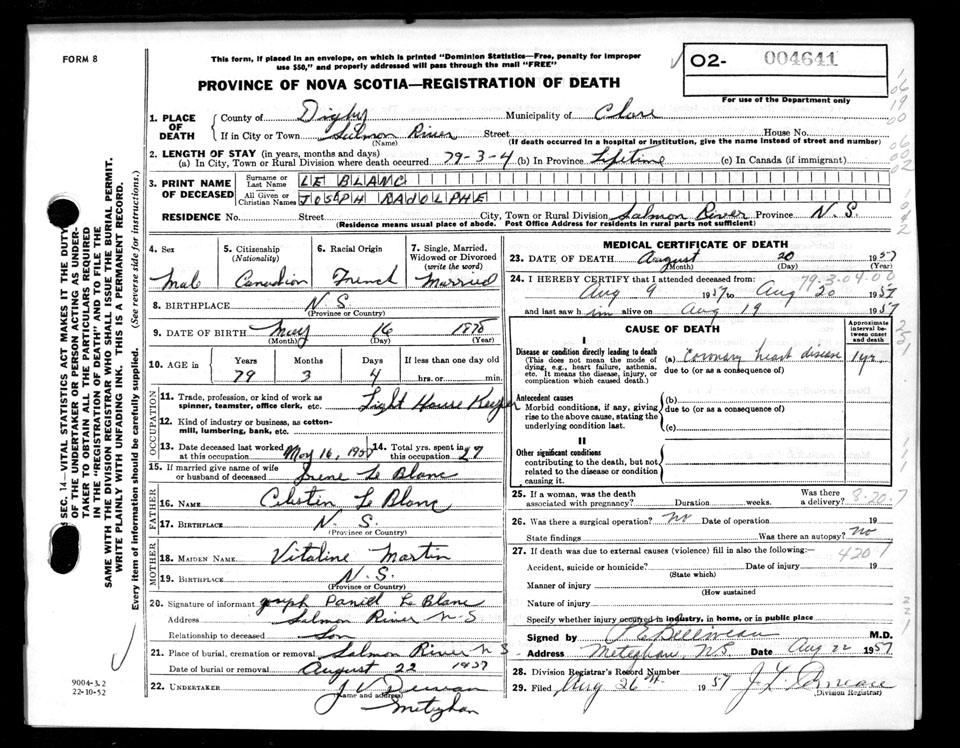 FORM 8
This form, if placed in an envelope, on which is printed "Dominion Statistics—Free, penalty for improper
use $50," and properly addressed will pass through the mail "FREE"
O2- 004641
For use of the Department only
PROVINCE OF NOVA SCOTIA—REGISTRATION OF DEATH
1. PLACE OF DEATH
County of Digby Municipality of Clare
If in City or Town Salmon River Street House No.
(Name) (If death occurred in a hospital or institution, give the name instead of street and number)
2. LENGTH OF STAY (in years, months and days)
(a) In City, Town or Rural Division where death occurred 79-3-4 (b) In Province Lifetime (c) In Canada (if immigrant)
3. PRINT NAME OF DECEASED
Surname or Last Name LE BLANC
All Given or Christian Names JOSEPH RADOLPHE
RESIDENCE No. Street City, Town or Rural Division Salmon River Province N.S.
(Residence means usual place of abode. Post Office Address for residents in rural parts not sufficient)
4. Sex 5. Citizenship (Nationality) 6. Racial Origin 7. Single, Married, Widowed or Divorced (write the word)
Male Canadian French Married
8. BIRTHPLACE N.S.
(Province or Country)
9. DATE OF BIRTH May 16 1878
(Month) (Day) (Year)
10. AGE in Years Months Days If less than one day old
79 3 4 hrs. or min.
OCCUPATION
11. Trade, profession, or kind of work as spinner, teamster, office clerk, etc. Light House Keeper
12. Kind of industry or business, as cotton-mill, lumbering, bank, etc.
13. Date deceased last worked at this occupation May 16, 14. Total yrs. spent in this occupation 27
15. If married give name of wife or husband of deceased Irene Le Blanc
FATHER
16. NAME Celestin Le Blanc
17. BIRTHPLACE N. S.
(Province or Country)
MOTHER
18. MAIDEN NAME Vitaline Martin
19. BIRTHPLACE N.S.
(Province or Country)
20. Signature of informant Joseph Daniel Le Blanc
Address Salmon River N-S
Relationship to deceased Son
21. Place of burial, cremation or removal Salmon River N S
Date of burial or removal August 22 1957
22. UNDERTAKER J V
(Name and address)
Meteghan
MEDICAL CERTIFICATE OF DEATH
23. DATE OF DEATH August 20 1957
(Month) (Day) (Year)
24. I HEREBY CERTIFY that I attended deceased from: 79.3.04.00
Aug 9 1957 to Aug 20 1957
and last saw him alive on Aug 19 1957
CAUSE OF DEATH
Approximate interval between onset and death
I
Disease or condition directly leading to death (a) Coronary heart disease 1 yr.
(This does not mean the mode of dying, e.g., heart failure, asthenia, etc. It means the disease, injury, or complication which caused death.)
due to (or as a consequence of)
Antecedent causes (b)
Morbid conditions, if any, giving rise to the above cause, stating the underlying condition last.
due to (or as a consequence of)
(c)
II
Other significant conditions
contributing to the death, but not related to the disease or condition causing it.
25. If a woman, was the death associated with pregnancy? Duration weeks. Was there a delivery? 8-20-7
26. Was there a surgical operation? no Date of operation 19
State findings Was there an autopsy? no
27. If death was due to external causes (violence) fill in also the following:— 4201
Accident, suicide or homicide? Date of injury 19
(State which)
Manner of injury
(How sustained
Nature of injury
Specify whether injury occurred in industry, in home, or in public place
Signed by P E Belliveau M.D.
Address Meteghan, N.S. Date Aug 22 1957
28. Division Registrar's Record Number
29. Filed Aug 26th 1957 J L Comeau
(Division Registrar)
SEC. 14—VITAL STATISTICS ACT MAKES IT THE DUTY
OF THE UNDERTAKER OR PERSON ACTING AS UNDER-
TAKER TO OBTAIN ALL THE PARTICULARS REQUIRED
IN THE "REGISTRATION OF DEATH" AND TO FILE THE
SAME WITH THE DIVISION REGISTRAR WHO SHALL ISSUE THE BURIAL PERMIT.
WRITE PLAINLY WITH UNFADING INK. THIS IS A PERMANENT RECORD.
Every item of information should be carefully supplied. (See reverse side for instructions.)
9004-3.2
22-10-52